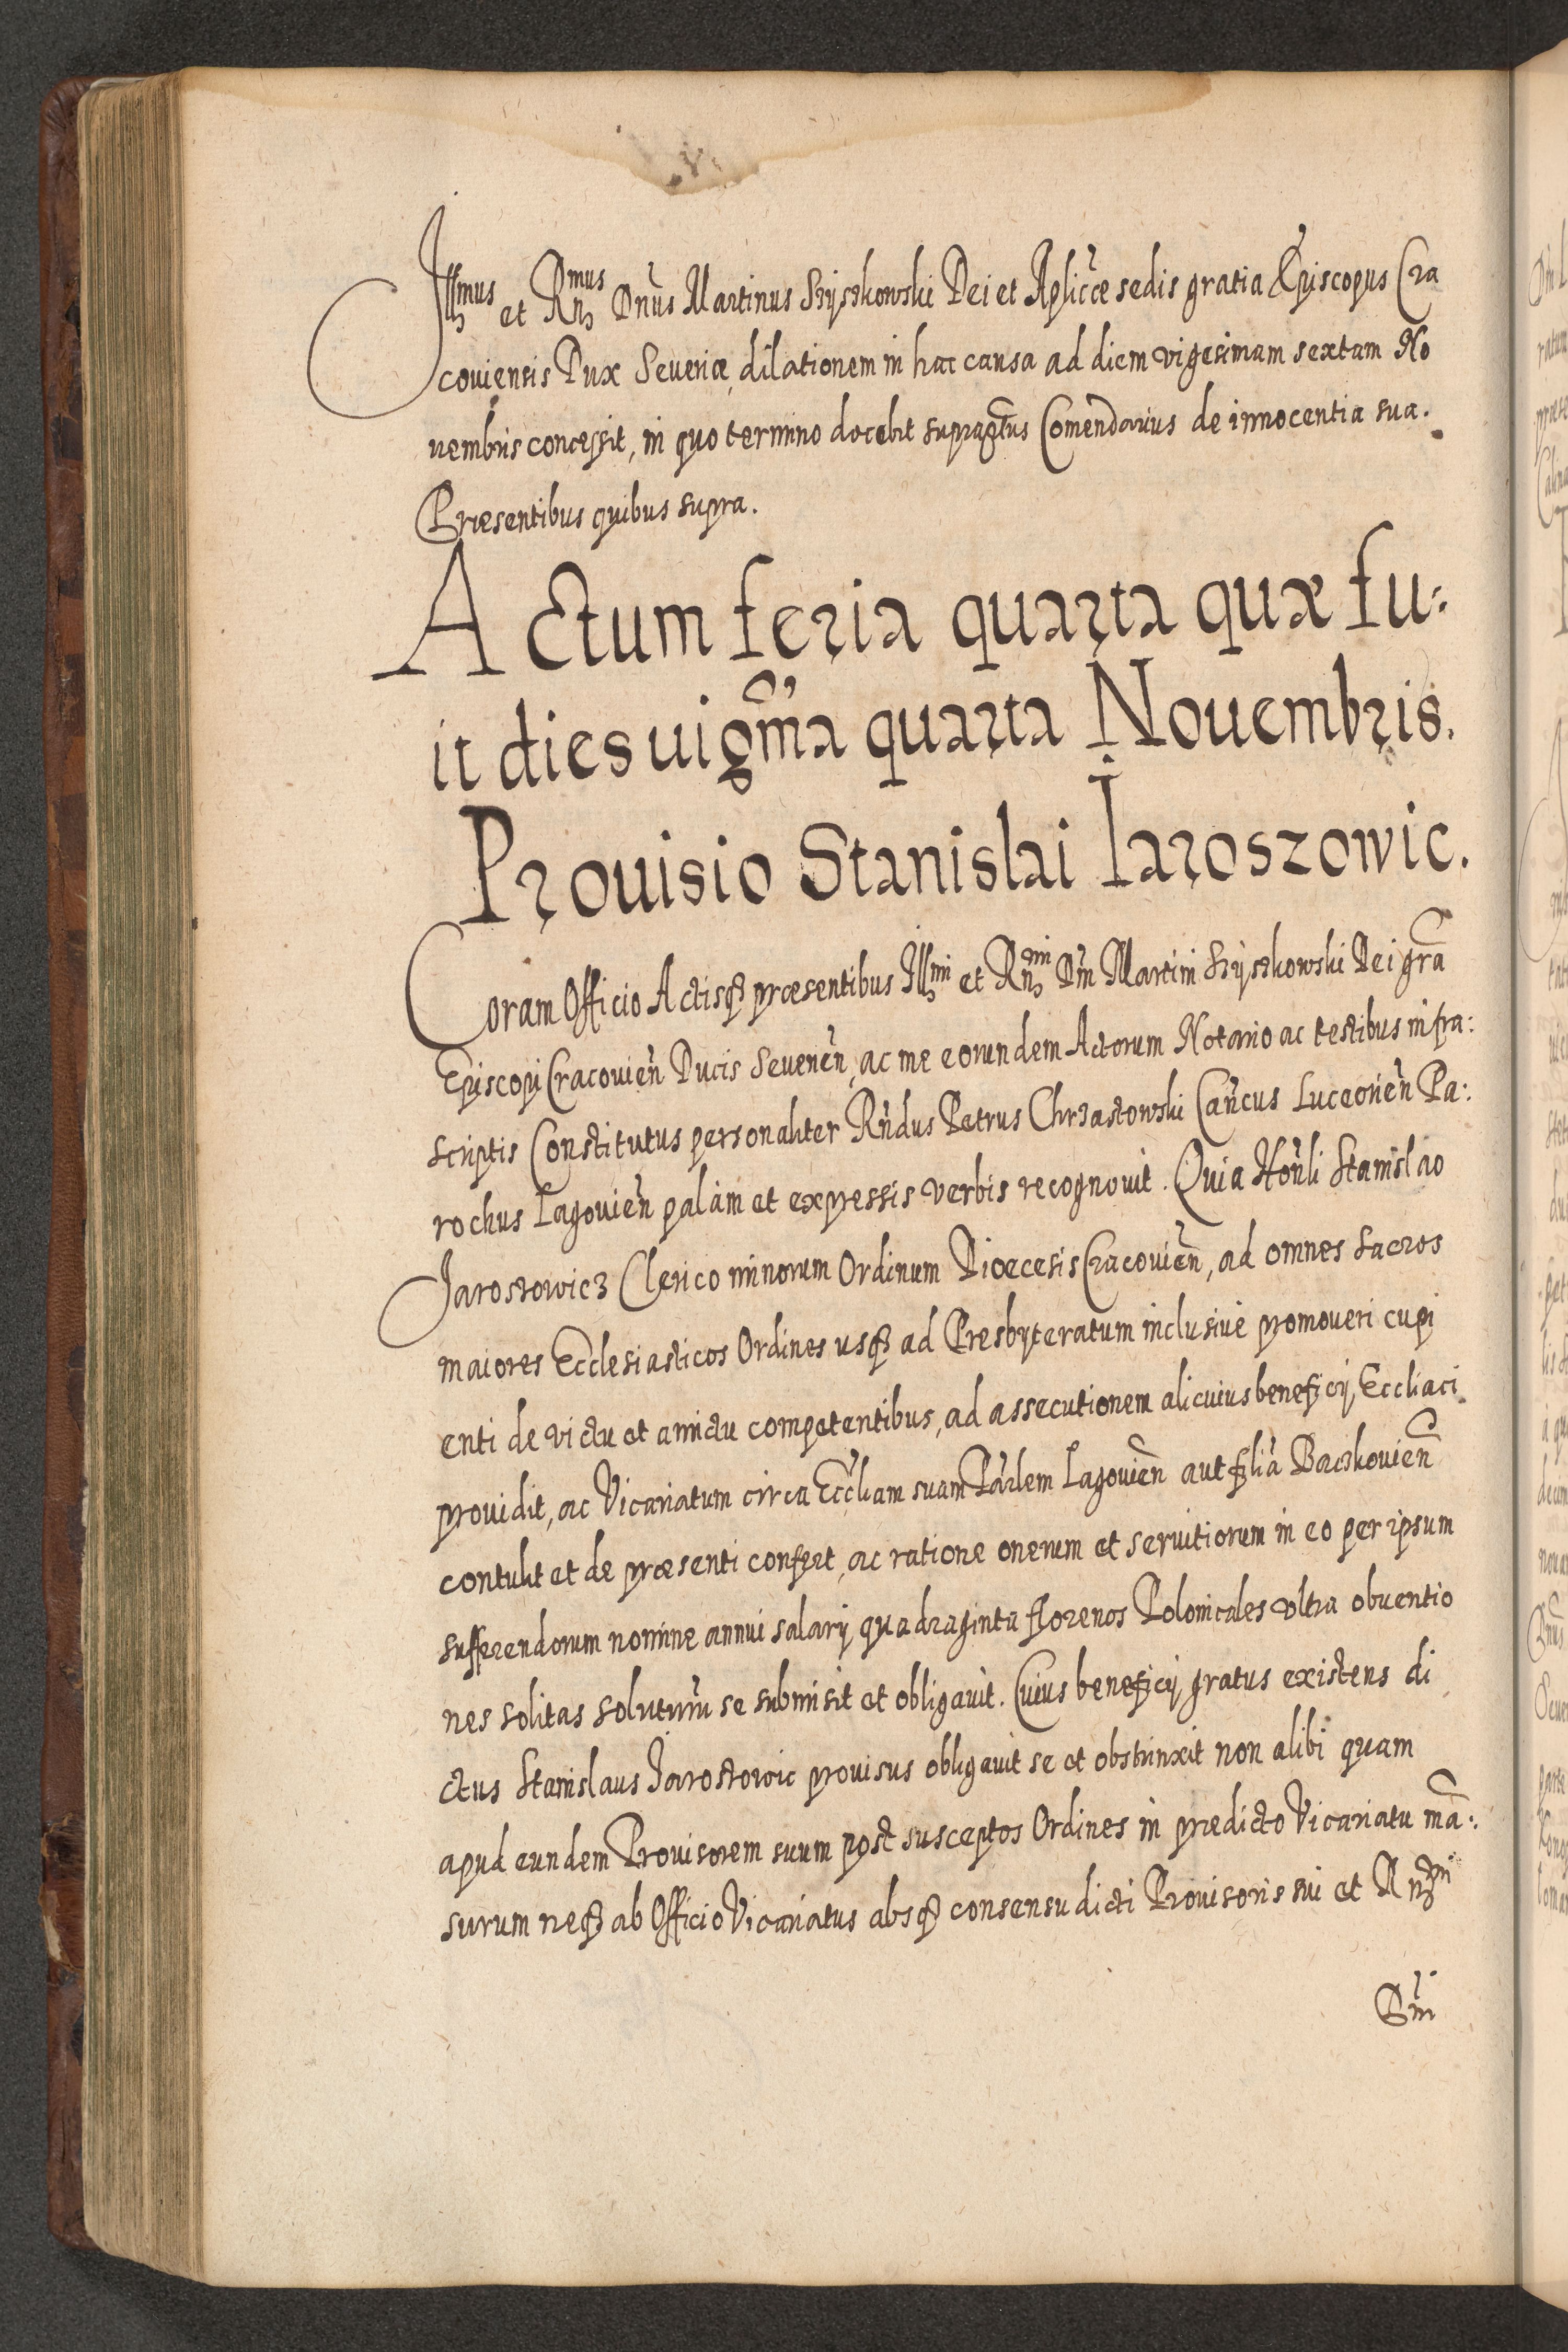 Illmus et Rnmus Dnus Martinus Szyszkowski Dei et Aplicæ sedis gratia Episcopus Cra
couiensis Dux Seueriæ, dilationem in hac causa ad diem vigesimam sextam No
uembris concessit, in quo termino docebit supragtus Comendarius de innocentia sua.
Præsentibus quibus supra.
Actum feria quarta quæ fu:
it dies uigma quarta Nouembris.
Prouisio Stanislai Iaroszowic.
Coram Officio Actisq præsentibus Illmi et Rnmi Dni Martini Szyszkowski Dei gra
Episcopi Cracouien Ducis Seuerien, ac me eorundem Actorum Notario ac testibus infra:
scriptis Constitutus personaliter Rndus Petrus Chrzastowski Cancus Luceorien Pa:
rochus Lagouien palam et expressis verbis recognouit. Quia Honli Stanislao
Jaroszowicz Clerico minorum Ordinum Dioecesis Cracouien, ad omnes sacros
maiores Ecclesiasticos Ordines usq ad Presbyteratum inclusiue promoueri cupi
enti de victu et amictu competentibus, ad assecutionem alicuius beneficij Eccliaci
prouidit, ac Vicariatum circa Eccliam suam Parlem Lagouien aut filia Baczkouien
contulit et de præsenti confert, ac ratione onerum et seruitiorum in eo per ipsum
sufferendorum nomine annui salarij quadraginta florenos Polonicales ultra obuentio
nes solitas soluturu se submisit et obligauit. Cuius beneficij gratus existens di
ctus Stanislaus Jaroszowic prouisus obligauit se et obstrinxit non alibi quam
apud eundem Prouisorem suum post susceptos Ordines in prædicto Vicariatu ma:
surum neq ab Officio Vicariatus absq consensu dicti Prouisoris sui et Rnmi
Dni